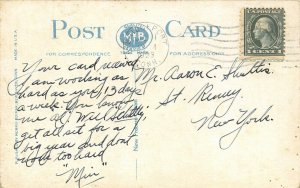 POST CARD
MYB
FOR CORRESPONDENCE
FOR ADDRESS
Your card received.
I am working as
hard as you, 13 days
a week. You know
me all. Will
get all set for a
big year and don't
work too hard
"Min"
Mr. Aaron E.
St. Remy
New York.
1 CENT 1